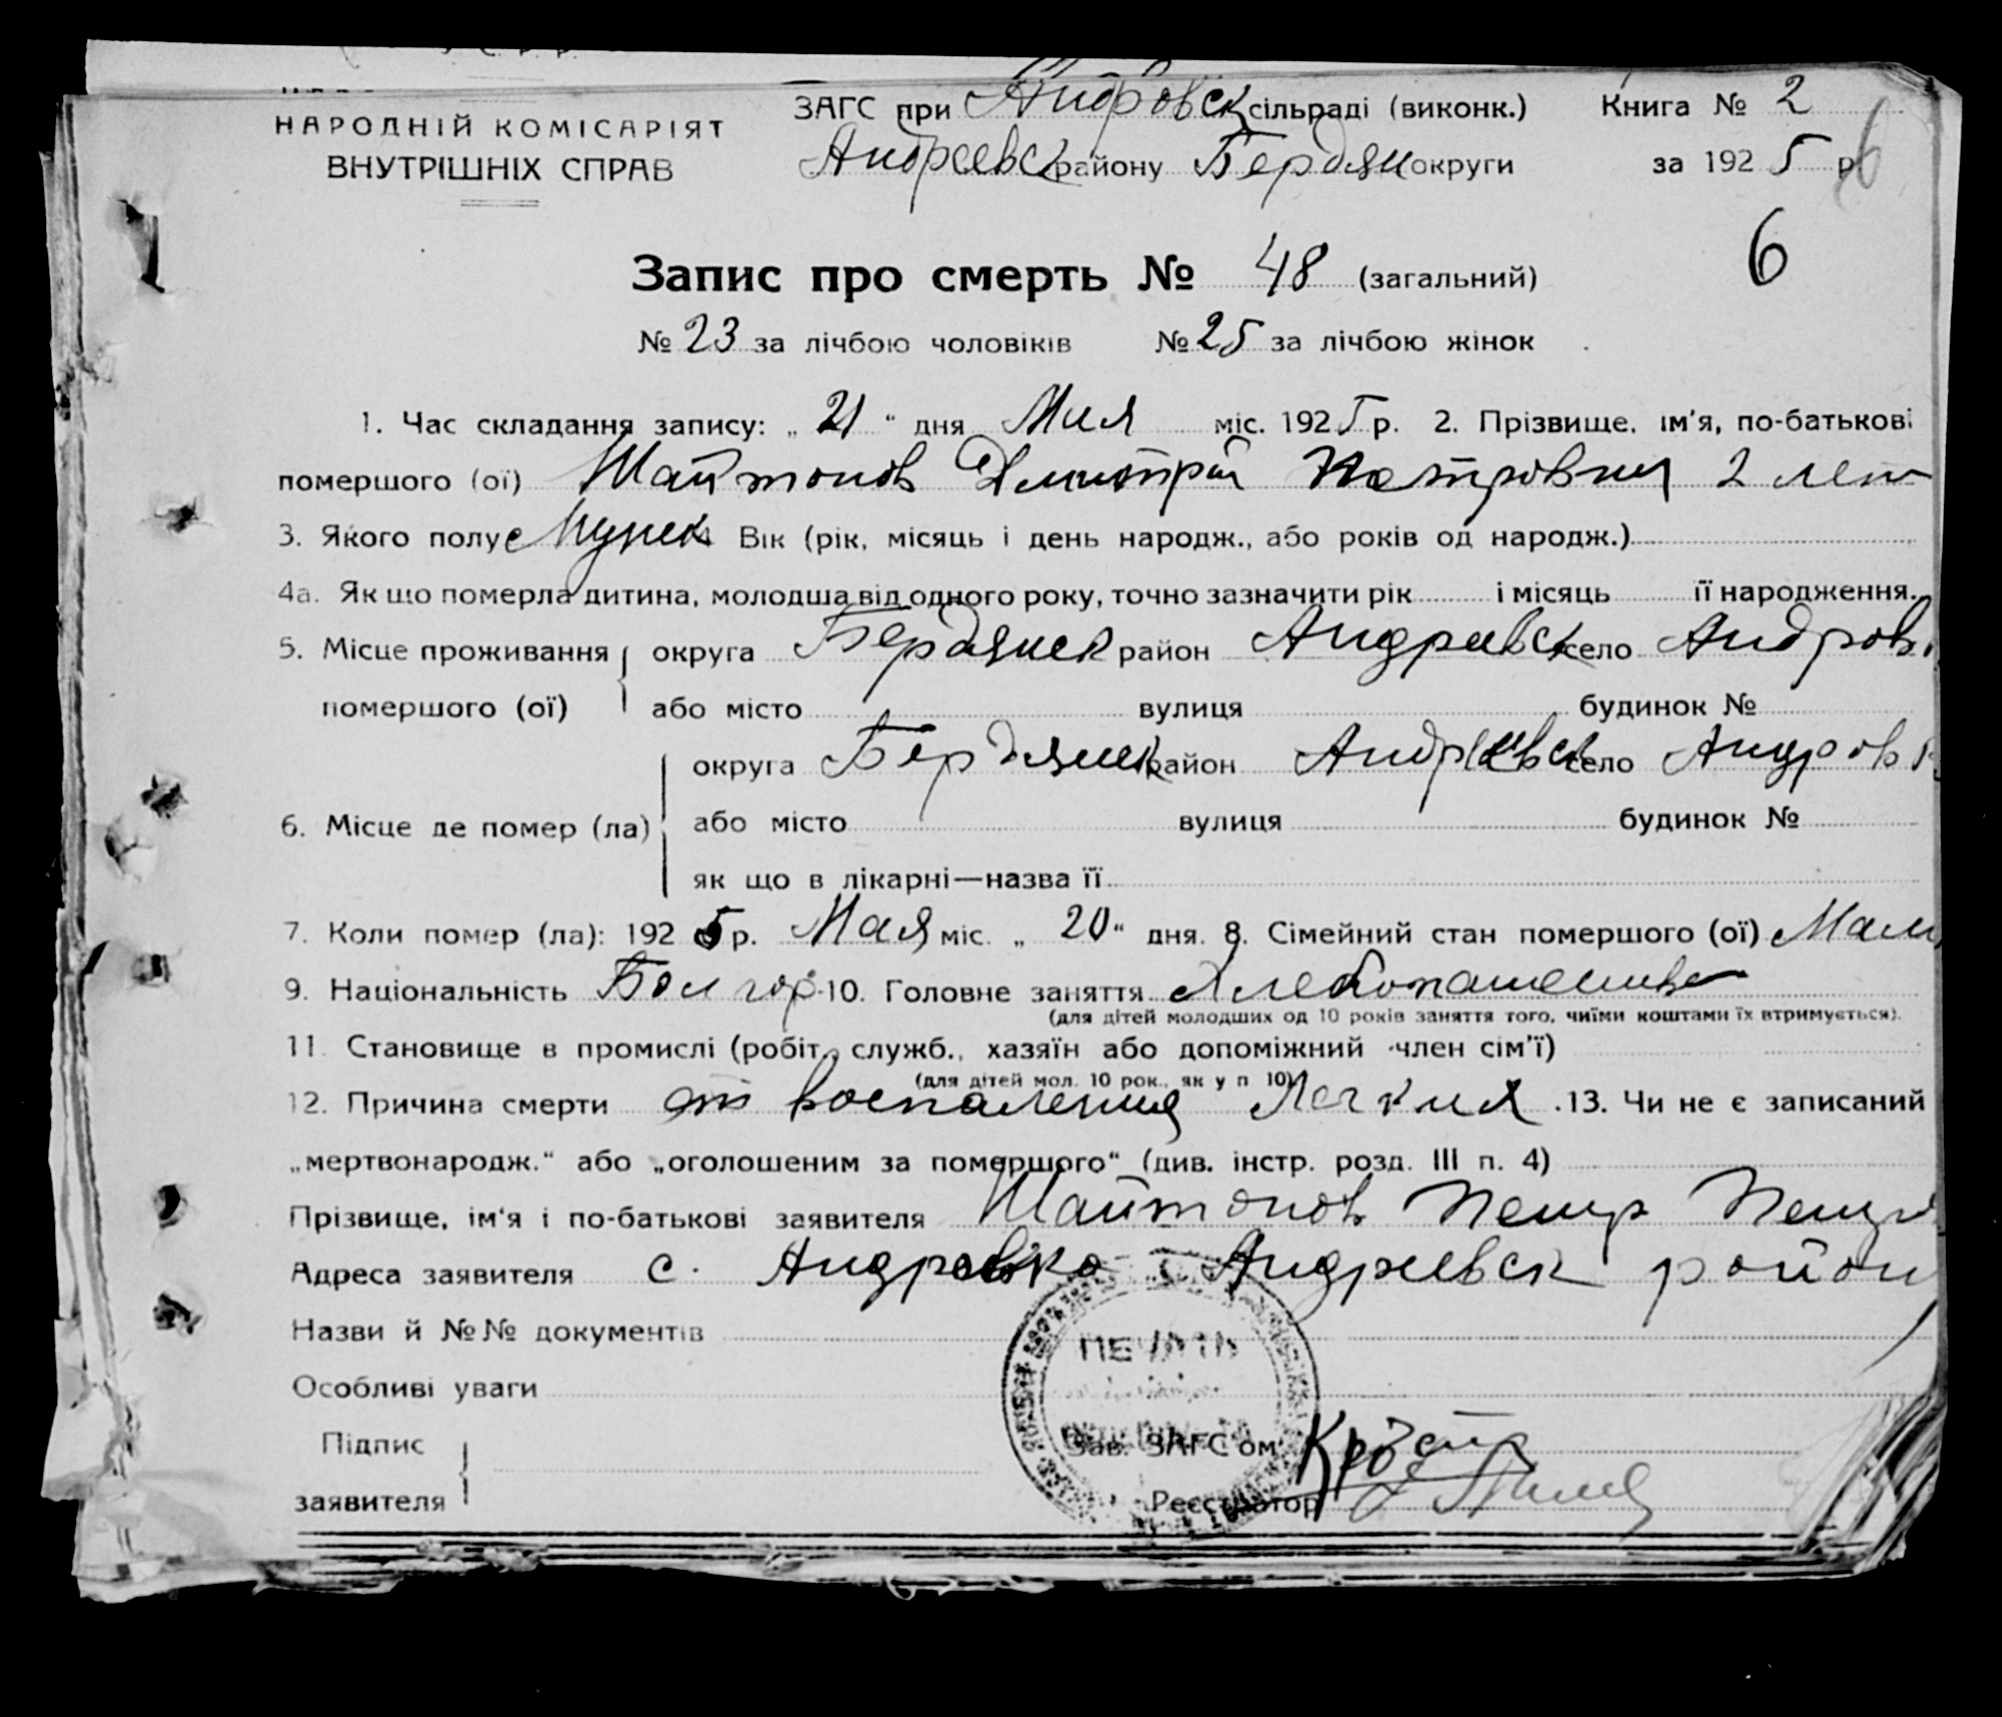 НАРОДНІЙ КОМІСАРІЯТ
ВНУТРІШНІХ СПРАВ
ЗАГС при Андровск сільраді (виконк.) Книга № 2
Андреевск району Бердян округи за 1925 р 6
6
Запис про смерть № 48 (загальний)
№ 23 за лічбою чоловіків № 25 за лічбою жінок
1. Час складання запису: „21“ дня Мая міс. 1925 р. 2. Прізвище, ім'я, по-батькові
помершого (ої) Шайтонов Дмитрій Петрович 2 лет
3. Якого полу Мужск Вік (рік, місяць і день народж., або років од народж.)
4а. Як що померла дитина, молодша від одного року, точно зазначити рік і місяць її народження.
5. Місце проживання помершого (ої) округа Бердянск район Андреевск село Андровк
або місто вулиця будинок №
6. Місце де помер (ла) округа Бердянск район Андреевск село Андровк
або місто вулиця будинок №
як що в лікарні—назва її
7. Коли помер (ла): 1925 р. Мая міс. „20“ дня. 8. Сімейний стан помершого (ої) Мал
9. Національність Болгар 10. Головне заняття Хлебопашенство
(для дітей молодших од 10 років заняття того, чиїми коштами їх втримується).
11. Становище в промислі (робіт., служб., хазяїн або допоміжний член сім'ї)
(для дітей мол. 10 рок., як у п 10)
12. Причина смерти от воспаления Легких 13. Чи не є записаний
„мертвонародж.“ або „оголошеним за помершого“ (див. інстр. розд. III п. 4)
Прізвище, ім'я і по-батькові заявителя Шайтонов Петр Петр
Адреса заявителя с. Андровка Андреевск район
Назви й №№ документів
Особливі уваги
ПЕЧАТЬ
Підпис
заявителя
Зав. ЗАГС'ом
Реєстратор